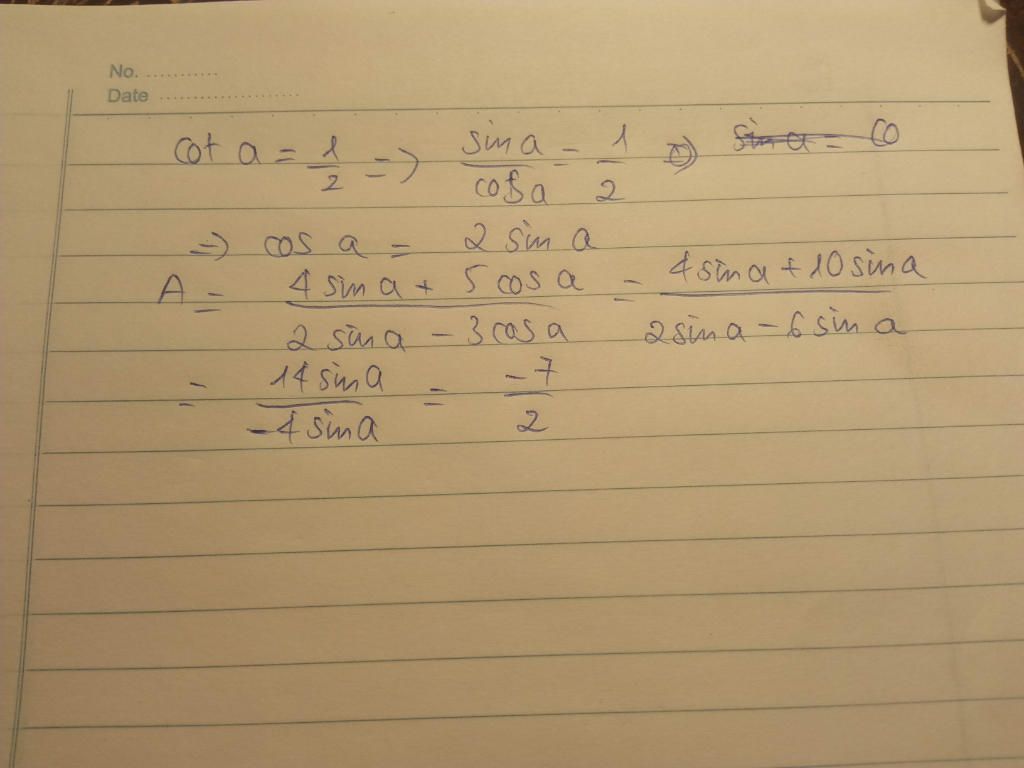 No. ...........
Date ......................
cot a = 1/2 => sin a / cos a = 1/2
=> cos a = 2 sin a
A = (4 sin a + 5 cos a) / (2 sin a - 3 cos a) = (4 sin a + 10 sin a) / (2 sin a - 6 sin a)
= 14 sin a / -4 sin a = -7/2